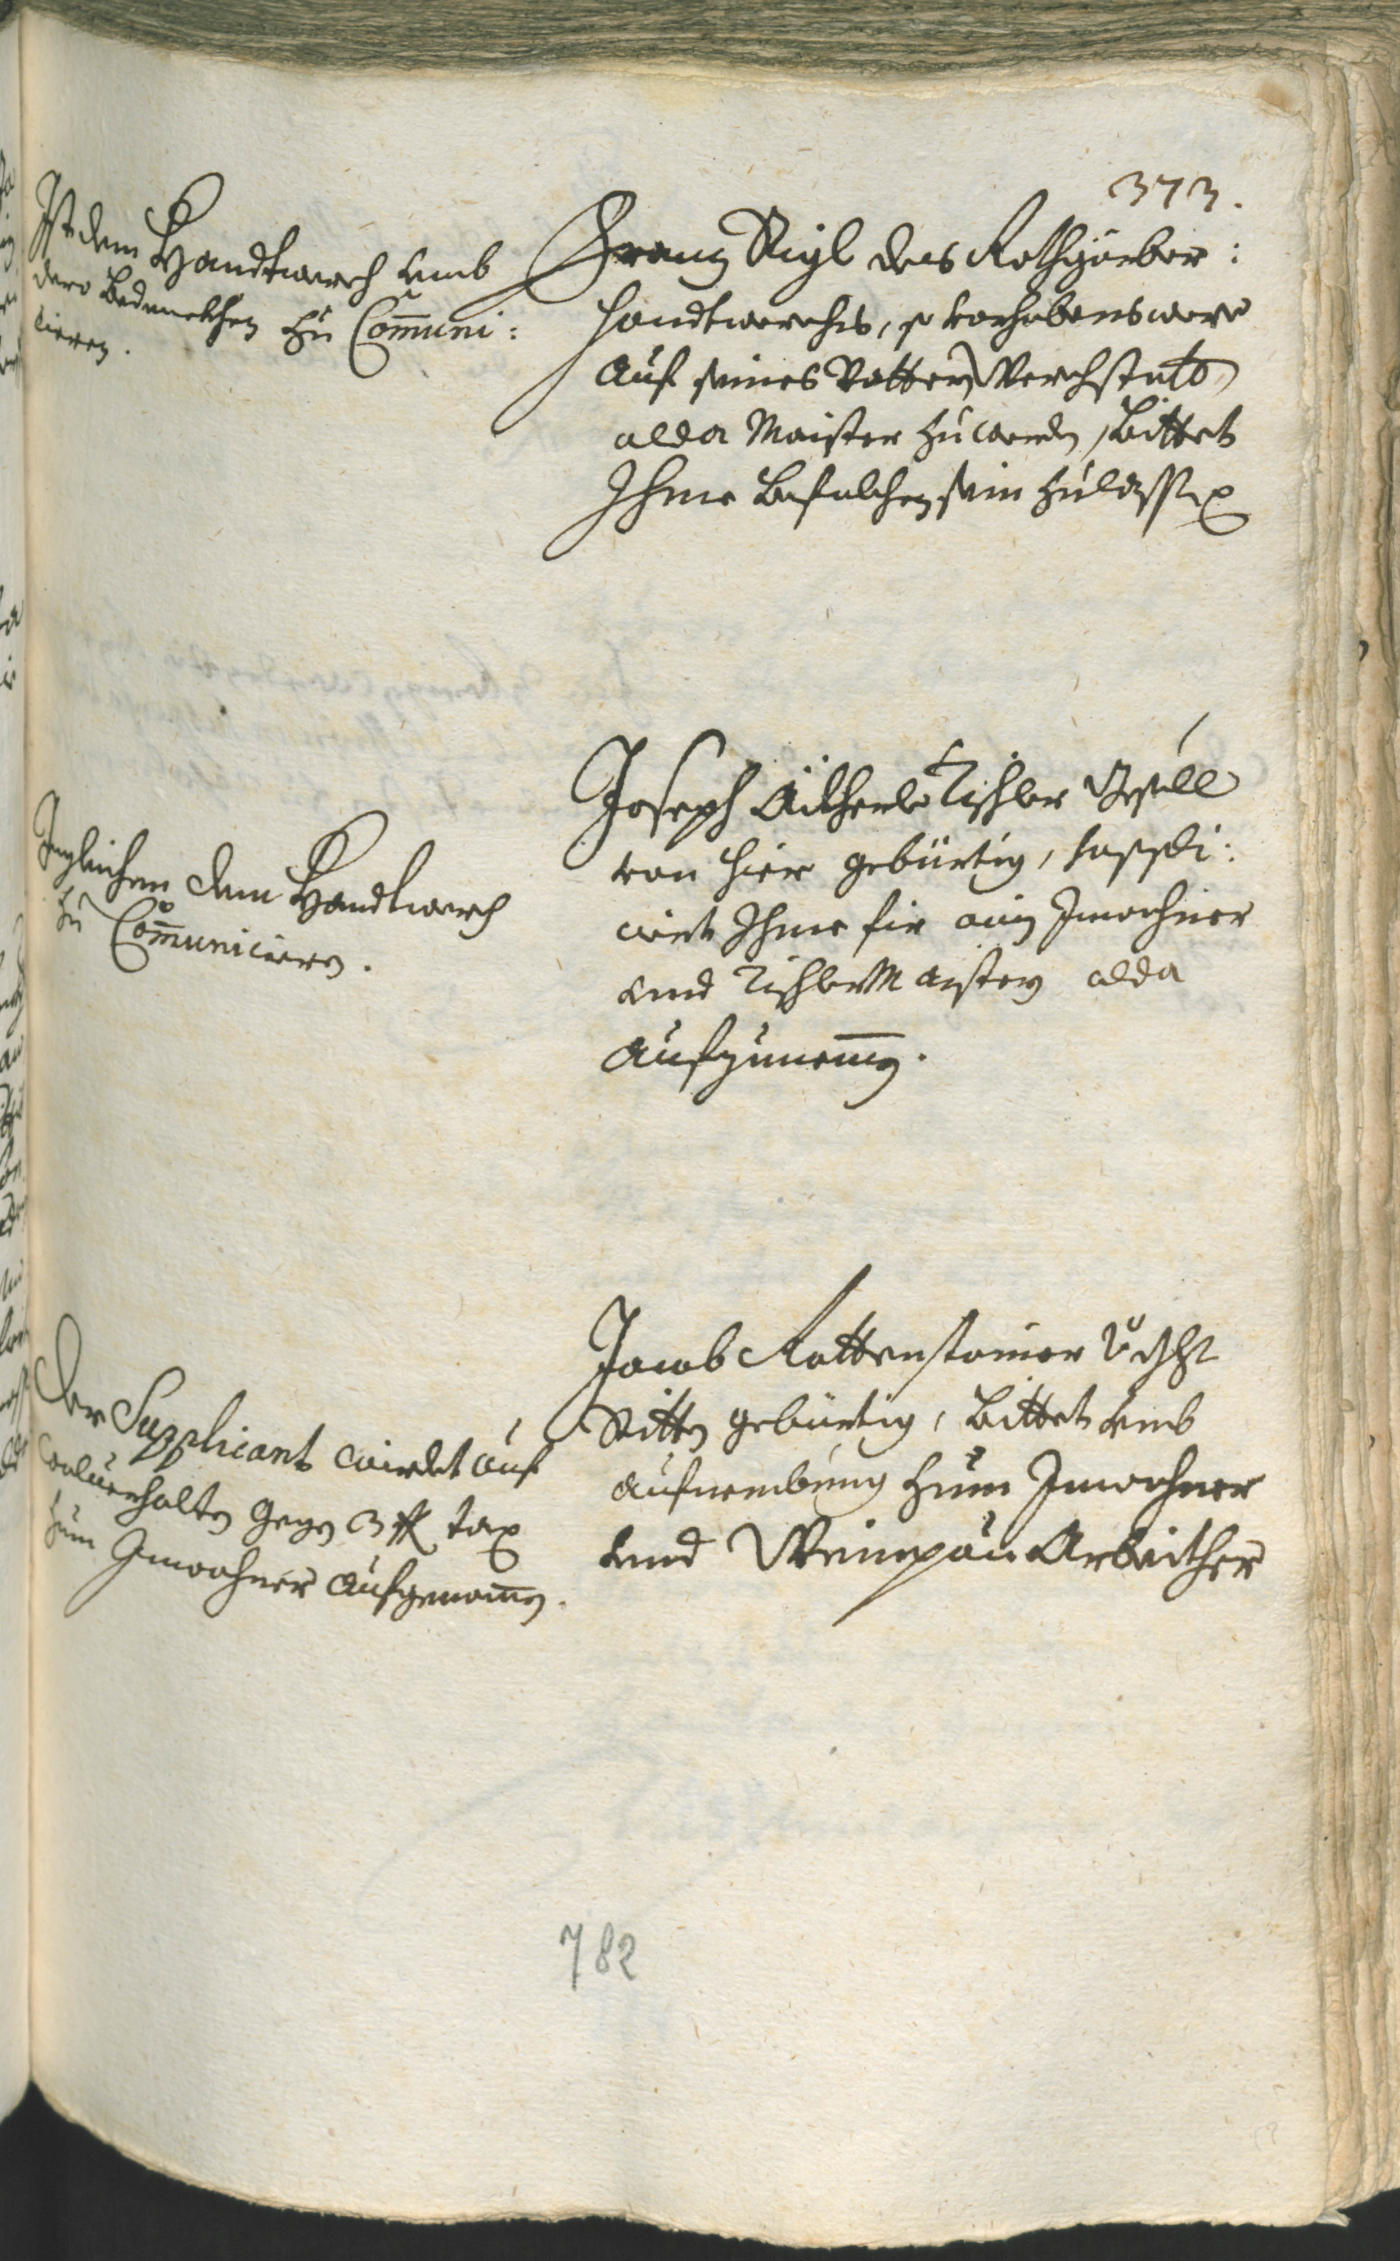 373.
Ist dem Handtwerch umb
dero Bedunckhen zu Communi:
cieren.
Franz Rigl des Rothgärber:
handtwerchs, so vorhabens were
auf seines Vattern Werchstatt
alda Maister zu werden, Bittet
Ihme Befelchen sein zulassen
Ingleichen dem Handtwerch
zu Communicieren.
Joseph Tischler Gesell
von hier gebürtig, suppli:
ciert Ihme fir ain Inwohner
und Tischler Maistern alda
aufzunemen.
Der Supplicant wirdet auf
wolverhalten gegen 3 fl tax
zum Inwohner aufgenomen.
Jacob Rottenstainer
Ritten gebürtig, Bittet umb
aufnembung zum Inwohner
und Weinpau Arbeither
782